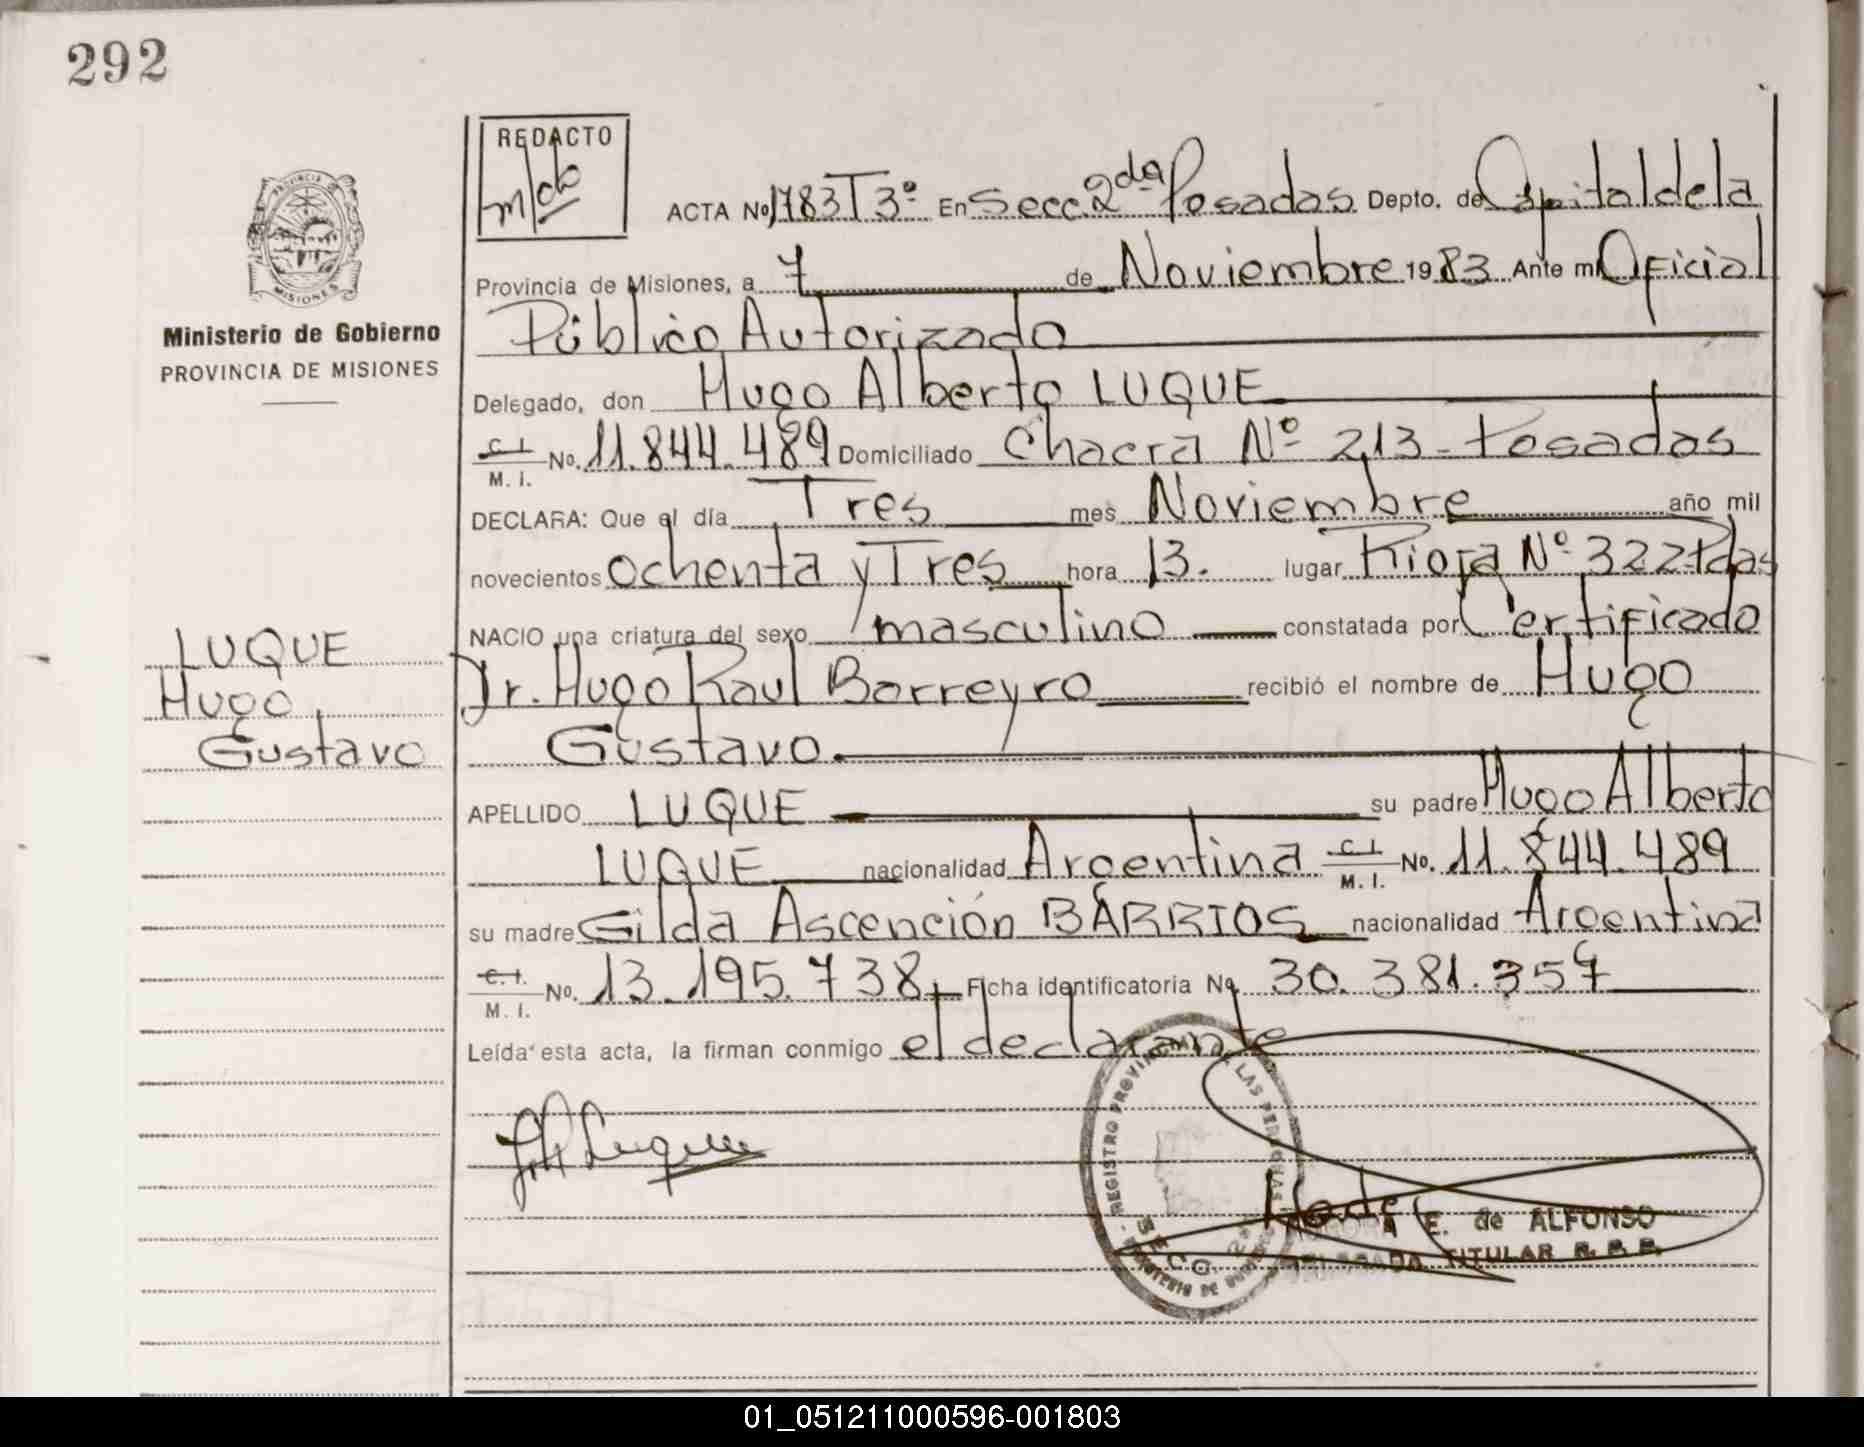 292
REDACTO
ACTA No 1783 T 3º En Secc. 2da Posadas Depto. de Capital de la
Provincia de Misiones, a 7 de Noviembre 1983 Ante mi Oficial
Público Autorizado
Delegado, don Hugo Alberto LUQUE
C. I. M. I. No. 11.844.489 Domiciliado Chacra Nº 213 - Posadas
DECLARA: Que el día Tres mes Noviembre año mil
novecientos ochenta y Tres hora 13. lugar Rioja Nº 322 Pdas
NACIO una criatura del sexo masculino constatada por Certificado
Dr. Hugo Raul Barreyro recibió el nombre de Hugo
Gustavo.
APELLIDO LUQUE su padre Hugo Alberto
LUQUE nacionalidad Argentina C. I. M. I. No. 11.844.489
su madre Gilda Ascención BARRIOS nacionalidad Argentina
C. I. M. I. No. 13.195.738 Ficha identificatoria No. 30.381.357
Leída esta acta, la firman conmigo el declarante
Ministerio de Gobierno
PROVINCIA DE MISIONES
LUQUE
Hugo
Gustavo
PROVINCIA DE
MISIONES
REGISTRO PROVINCIAL DE LAS PERSONAS
SECC. 2ª
Luque
E. de ALFONSO
DELEGADA TITULAR R. P. P.
01_051211000596-001803